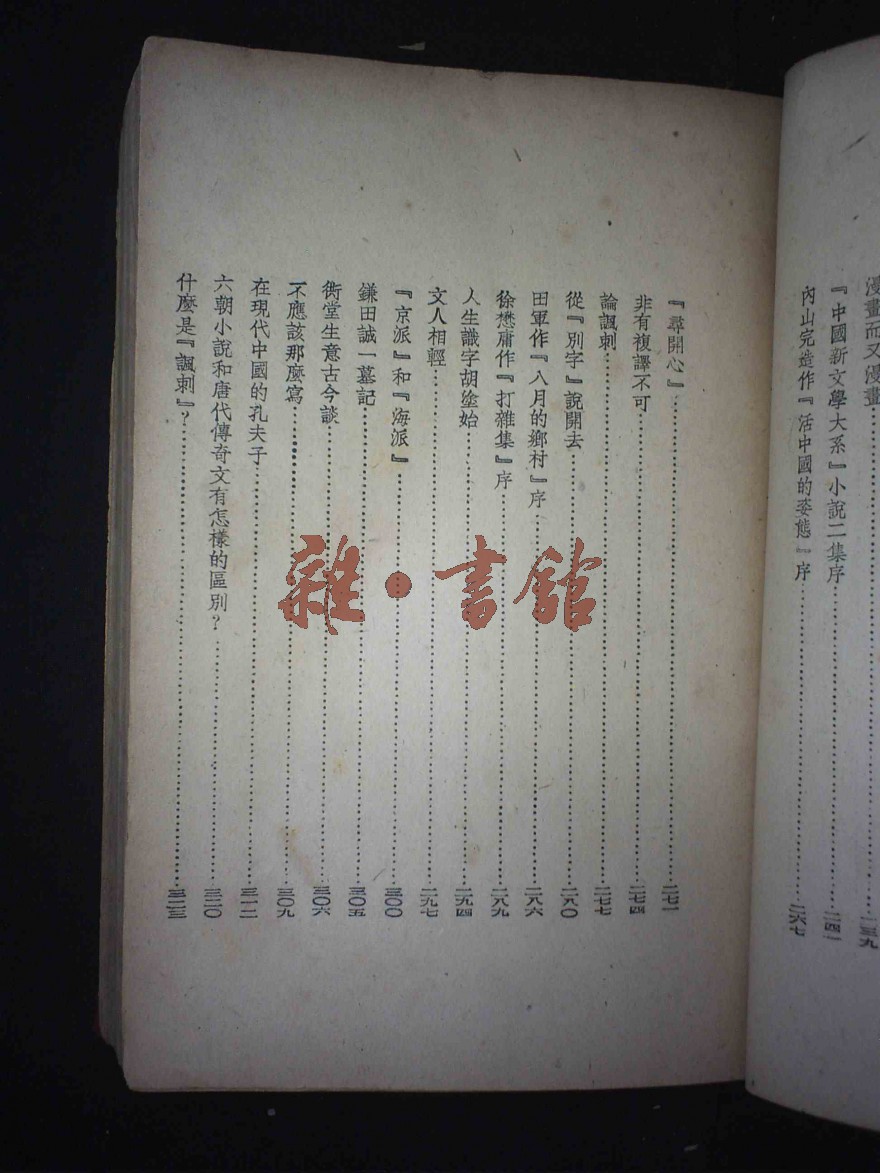 漫畫而又漫畫……二三九
『中國新文學大系』小說二集序……二四一
內山完造作『活中國的姿態』序……二六七
『尋開心』……二七一
非有複譯不可……二七四
論諷刺……二七七
從『別字』說開去……二八〇
田軍作『八月的鄉村』序……二八六
徐懋庸作『打雜集』序……二八九
人生識字胡塗始……二九四
文人相輕……二九七
『京派』和『海派』……三〇〇
鎌田誠一墓記……三〇五
衖堂生意古今談……三〇六
不應該那麼寫……三〇九
在現代中國的孔夫子……三一二
六朝小說和唐代傳奇文有怎樣的區別?……三二〇
什麼是『諷刺』?……三二三
雜·書館